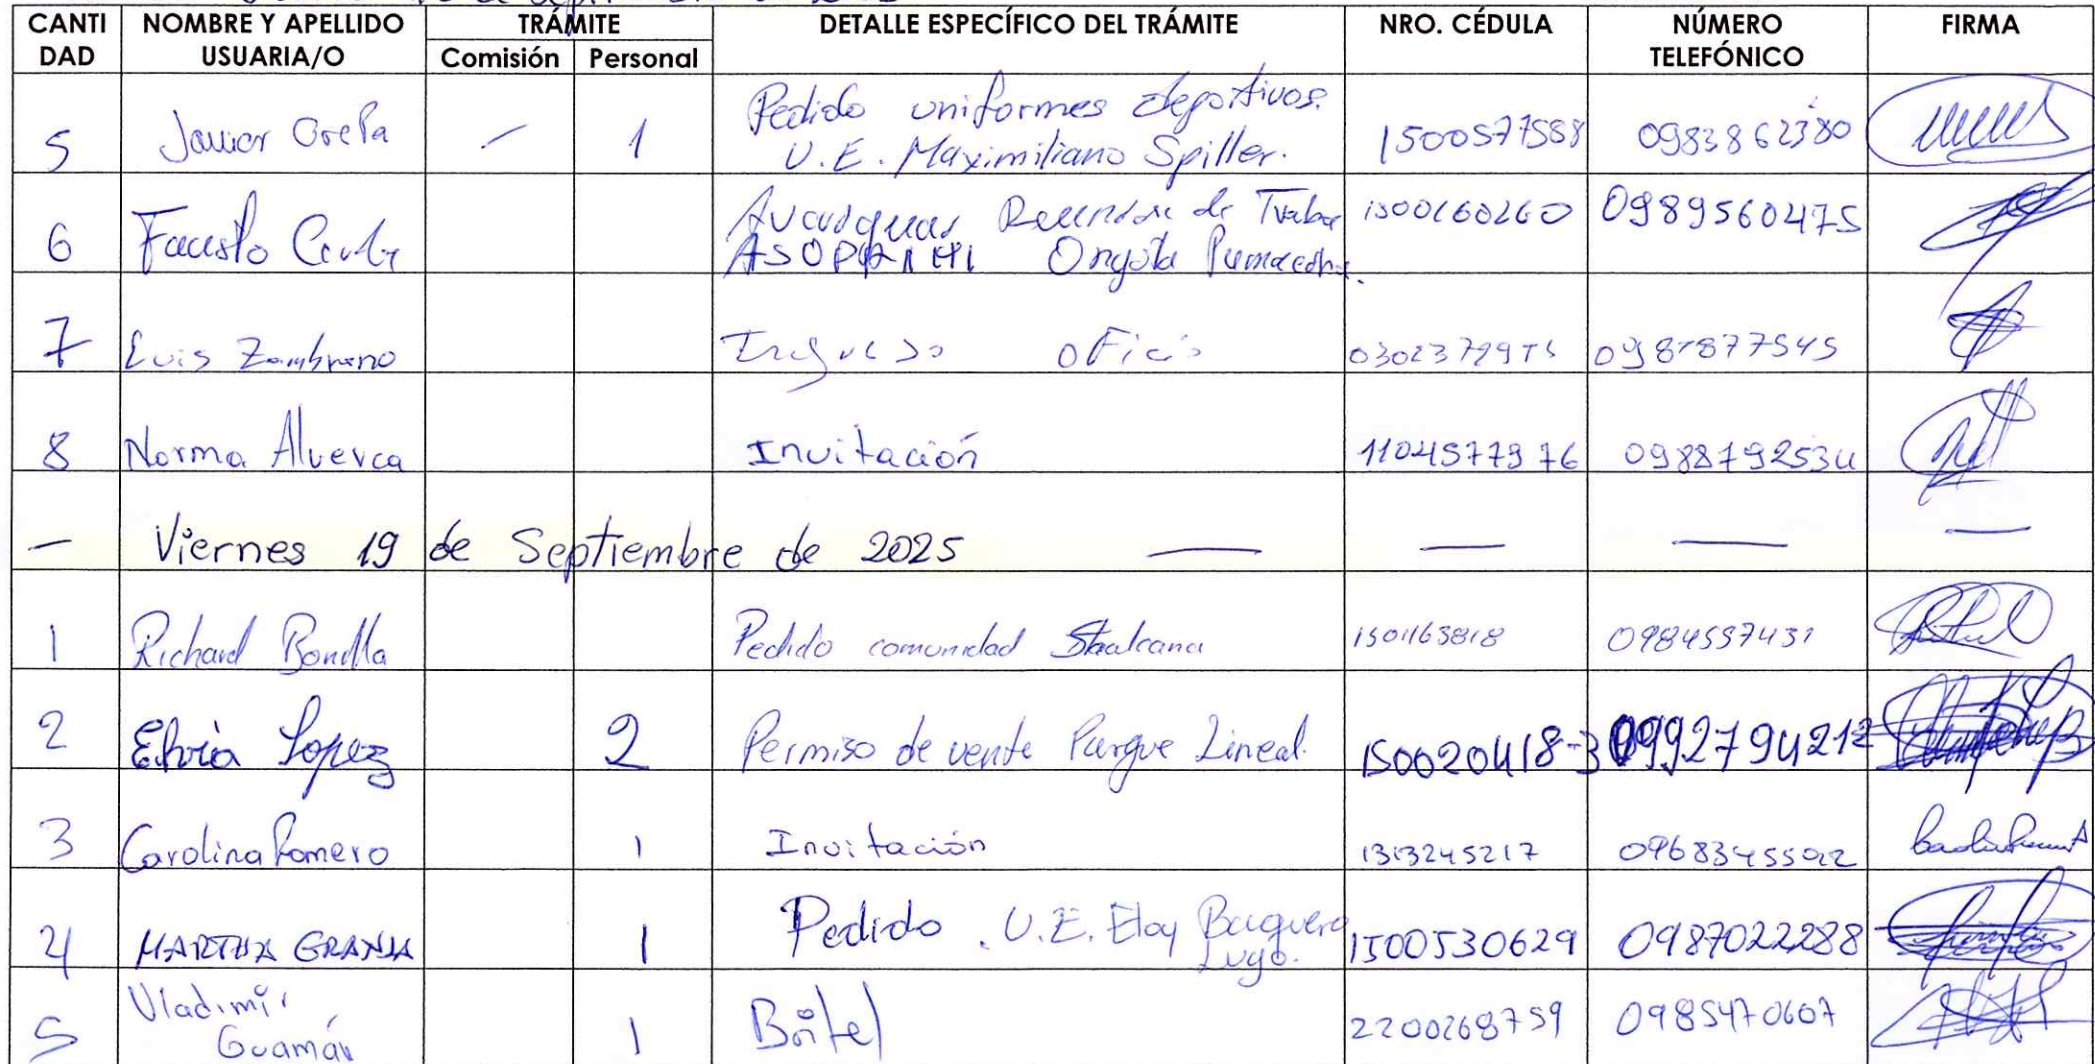 CANTI DAD NOMBRE Y APELLIDO USUARIA/O TRÁMITE Comisión Personal DETALLE ESPECÍFICO DEL TRÁMITE NRO. CÉDULA NÚMERO TELEFÓNICO FIRMA
5 Javier 1 Pedido uniformes deportivos. 1500577588 0983862380
U.E. Maximiliano Spiller.
6 Fausto de 1500160260 0989560475
7 Luis Zambrano Ingreso oficio 0981877545
8 Norma Alverca Invitación 1104577976 0988792534
— Viernes 19 de Septiembre de 2025 — — — —
1 Richard Bonilla Pedido comunidad 0984597431
2 Elvia Lopez 2 Permiso de vente Parque Lineal. 150020418-3 0992794212
3 Carolina Romero 1 Invitación 1313245217
4 MARTHA GRANJA 1 Pedido . U.E. Eloy Baquero Lugo. 1500530629 0987022288
5 Vladimir Guamán 1 2200268759 0985470607